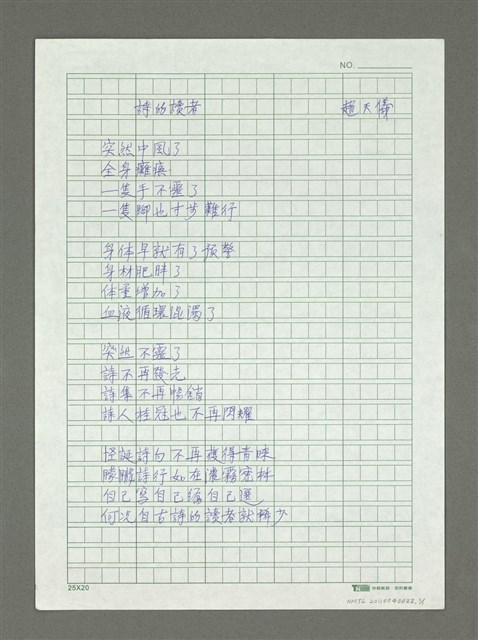 NO.
詩的讀者 趙天儀
突然中風了
全身癱瘓
一隻手不靈了
一隻腳也寸步難行
身体早就有了預警
身材肥胖了
体重增加了
血液循環混濁了
突然不靈了
詩不再發光
詩集不再暢銷
詩人桂冠也不再閃耀
怪誕詩句不再獲得青睞
朦朧詩行如在濃霧密林
自己寫自己編自己選
何況自古詩的讀者就稀少
25X20